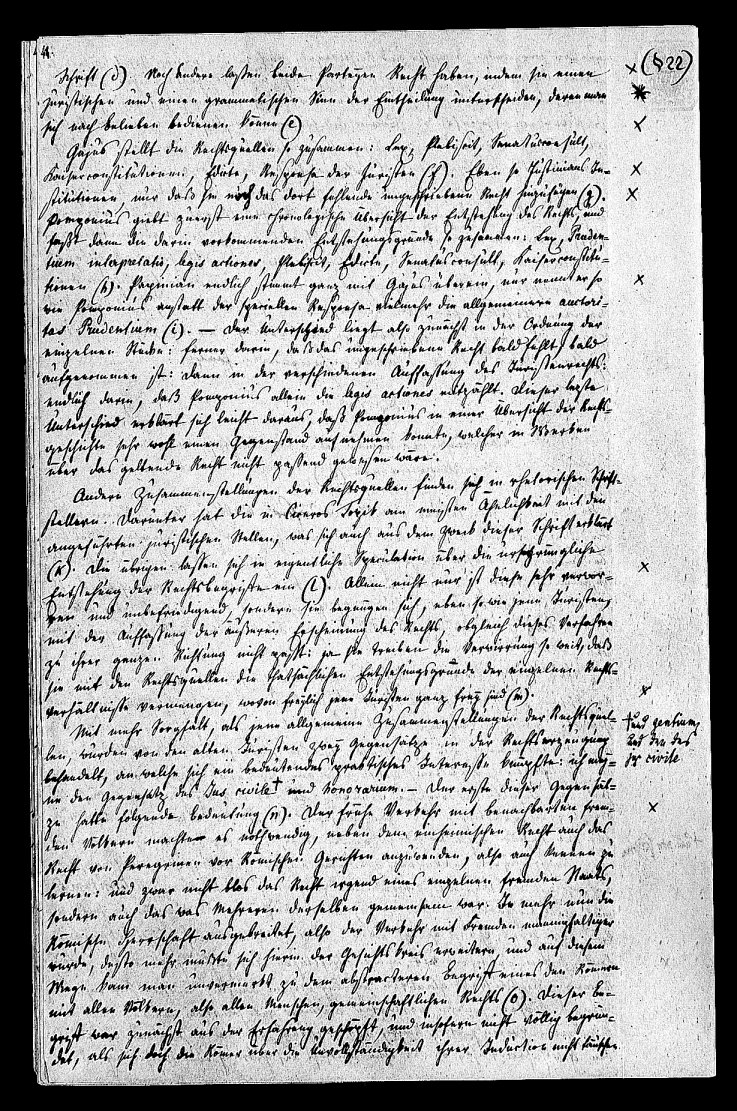 41.
(§ 22)
Schrift (d). Noch Andere lassen beide Parteyen Recht haben, indem sie einen
juristischen und einen grammatischen Sinn der Eintheilung unterscheiden, deren man
sich nach belieben bedienen könne (e)
Gajus stellt die Rechtsquellen so zusammen: Lex, Plebiscit, Senatusconsult,
Kaiserconstitutionen, Edicte, Responsa der Juristen (f). Eben so Justinians In-
stitutionen, nur daß sie noch das dort fehlende ungeschriebene Recht hinzufügen (g).
Pomponius giebt zuerst eine chronologische Übersicht der Entstehung des Rechts, und
faßt dann die darin vorkommenden Entstehungsgründe so zusammen: Lex, Pruden-
tium interpretatio, legis actiones, Plebiscit, Edicte, Senatusconsult, Kaiserconstitu-
tionen (h). Papinian endlich stimmt ganz mit Gajus überein, nur nennt er so
wie Pomponius anstatt der speciellen Responsa vielmehr die allgemeinere auctori-
tas Prudentium (i). — Der Unterschied liegt also zunächst in der Ordnung der
einzelnen Stücke: ferner darin, daß das ungeschriebene Recht bald fehlt, bald
aufgenommen ist: dann in der verschiedenen Auffassung des Juristenrechts:
endlich darin, daß Pomponius allein die legis actiones mitzählt. Dieser letzte
Unterschied erklärt sich leicht daraus, daß Pomponius in einer Übersicht der Rechts-
geschichte sehr wohl einen Gegenstand aufnehmen konnte, welcher in Werken
über das geltende Recht nicht passend gewesen wäre.
Andere Zusammenstellungen der Rechtsquellen finden sich in rhetorischen Schrift-
stellern. Darunter hat die in Ciceros Topik am meisten Ähnlichkeit mit den
angeführten juristischen Stellen, was sich auch aus dem Zweck dieser Schrift erklärt
(k). Die übrigen lassen sich in eigentliche Speculation über die ursprüngliche
Entstehung der Rechtsbegriffe ein (l). Allein nicht nur ist diese sehr verwor-
ren und unbefriedigend, sondern sie begnügen sich, eben so wie jene Juristen,
mit der Auffassung der äußeren Erscheinung des Rechts, obgleich dieses Verfahren
zu ihrer ganzen Richtung nicht paßt: ja sie treiben die Verwirrung so weit, daß
sie mit den Rechtsquellen die thatsächlichen Entstehungsgründe der einzelnen Rechts-
verhältnisse vermengen, wovon freylich jene Juristen ganz frey sind (m).
Mit mehr Sorgfalt, als jene allgemeine Zusammenstellungen der Rechtsquel-
len, wurden von den alten Juristen zwey Gegensätze in der Rechtserzeugung
behandelt, an welche sich ein bedeutendes praktisches Interesse knüpfte: ich mey-
ne den Gegensatz des Jus civile† und honorarium. — Der erste dieser Gegensät-
†und gentium,
und den des
jus civile
ze hatte folgende Bedeutung (n). Der frühe Verkehr mit benachbarten frem-
den Völkern machte es nothwendig, neben dem einheimischen Recht auch das
Recht von Peregrinen vor Römischen Gerichten anzuwenden, also auch kennen zu
lernen: und zwar nicht blos das Recht irgend eines einzelnen fremden Staats,
sondern auch das was Mehreren derselben gemeinsam war. Je mehr nun die
Römische Herrschaft ausgebreitet, also der Verkehr mit Fremden mannichfaltiger
wurde, desto mehr mußte sich hierin der Gesichtskreis erweitern und auf diesem
Wege kam man unvermerkt zu dem abstracteren Begriff eines den Römern
mit allen Völkern, also allen Menschen, gemeinschaftlichen Rechts (o). Dieser Be-
griff war zunächst aus der Erfahrung geschöpft, und insofern nicht völlig begrün-
det, als sich doch die Römer über die Unvollständigkeit ihrer Induction nicht täuschen